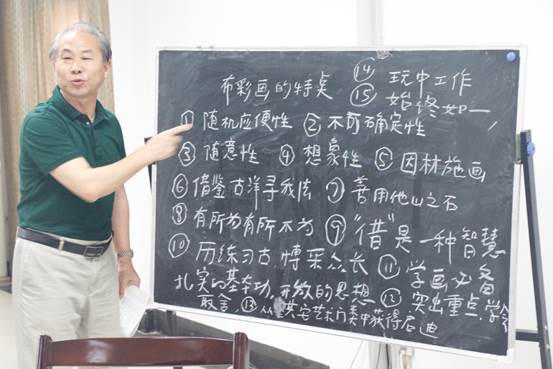 布彩画的特点
⑭ 玩中工作
⑮ 始终如一
① 随机应便性 ② 不可确定性
③ 随意性 ④ 想象性 ⑤ 因材施画
⑥ 借鉴古洋寻我法 ⑦ 善用他山之石
⑧ 有所为有所不为 ⑨ “借”是一种智慧
⑩ 历练习古 博采众长
⑪ 学画必备
扎实的基本功，开放的思想
⑫ 突出重点，学会
取舍，⑬ 从其它艺术门类中获得启迪